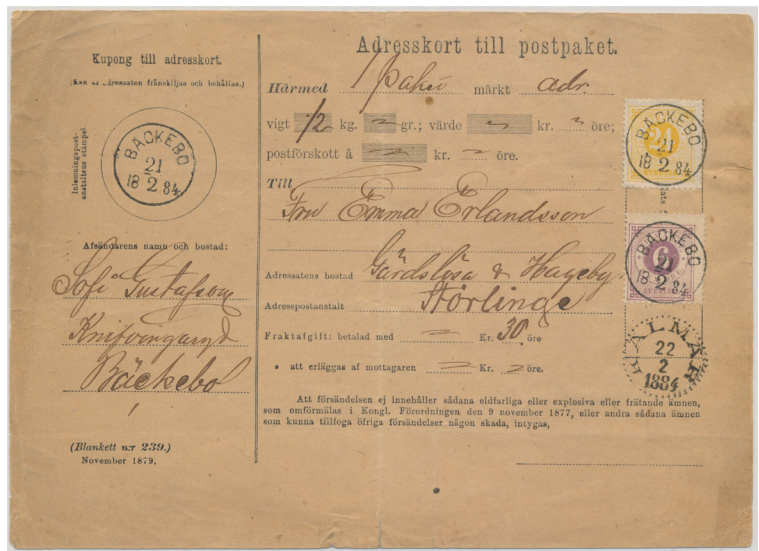 Kupong till adresskort.
(Kan af adressaten frånskiljas och behållas.)
Inlemningspost-
anstaltens stämpel
BÄCKEBO
21
18 2 84
Afsändarens namn och bostad:
Sofi Gustafson
Bäckebo
(Blankett n:r 239.)
November 1879.
Adresskort till postpaket.
Härmed 1 paket märkt adr.
vigt 1/2 kg. gr.; värde kr. öre;
postförskott å kr. öre.
Till
Fru Emma Erlandsson
Adressatens bostad Gärdslösa & Hageby
Adresspostanstalt Störlinge
Fraktafgift: betalad med Kr. 30 öre
" att erläggas af mottagaren Kr. öre.
Att försändelsen ej innehåller sådana eldfarliga eller explosiva eller frätande ämnen,
som omförmälas i Kongl. Förordningen den 9 november 1877, eller andra sådana ämnen
som kunna tillfoga öfriga försändelser någon skada, intygas,
24
BÄCKEBO
21
18 2 84
6
BÄCKEBO
21
18 2 84
KALMAR
22
2
1884